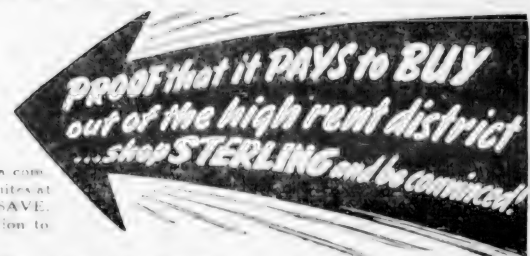 PROOF that it PAYS to BUY
out of the high rent district
...shop STERLING and be convinced!
a com
uites at
SAVE.
ion to